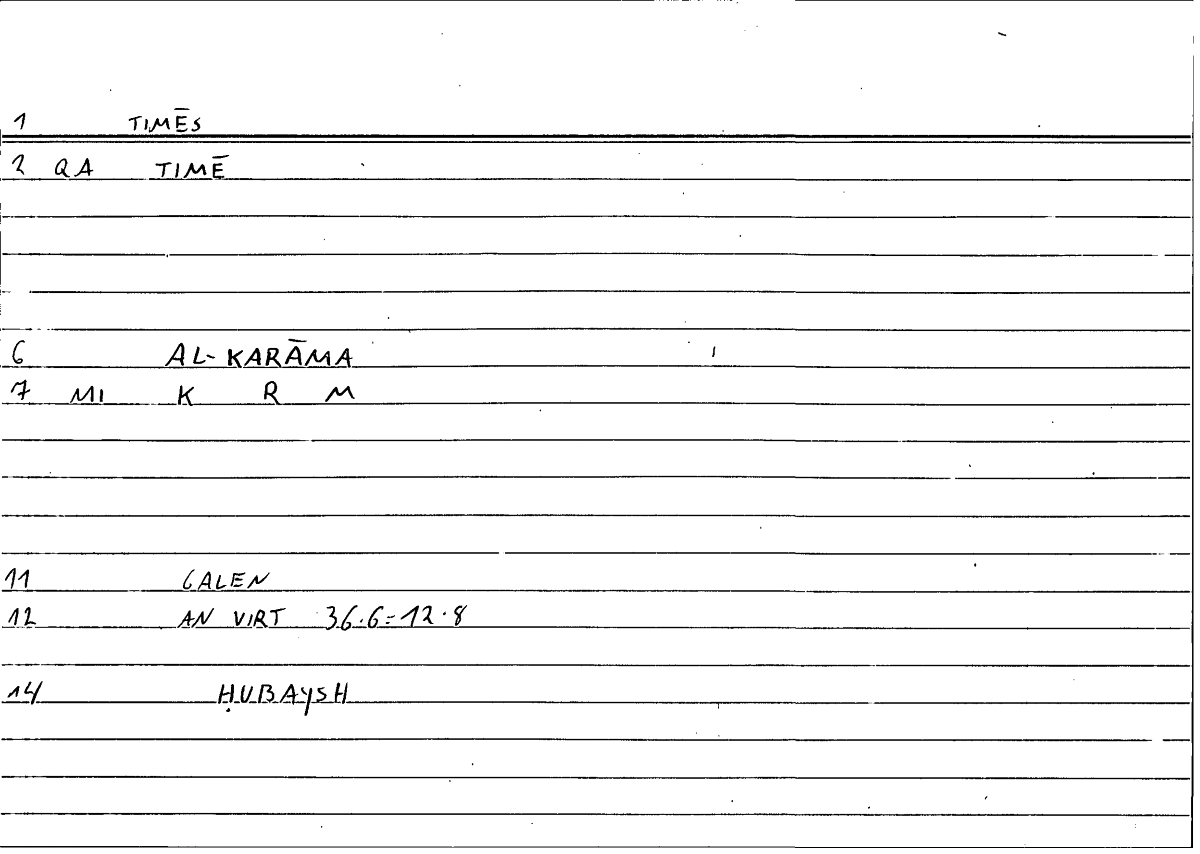 1 TIMĒS
2 QA TIMĒ
6 AL-KARĀMA
7 MI K R M
11 GALEN
12 AN VIRT 36.6=12.8
14 ḤUBAYSH